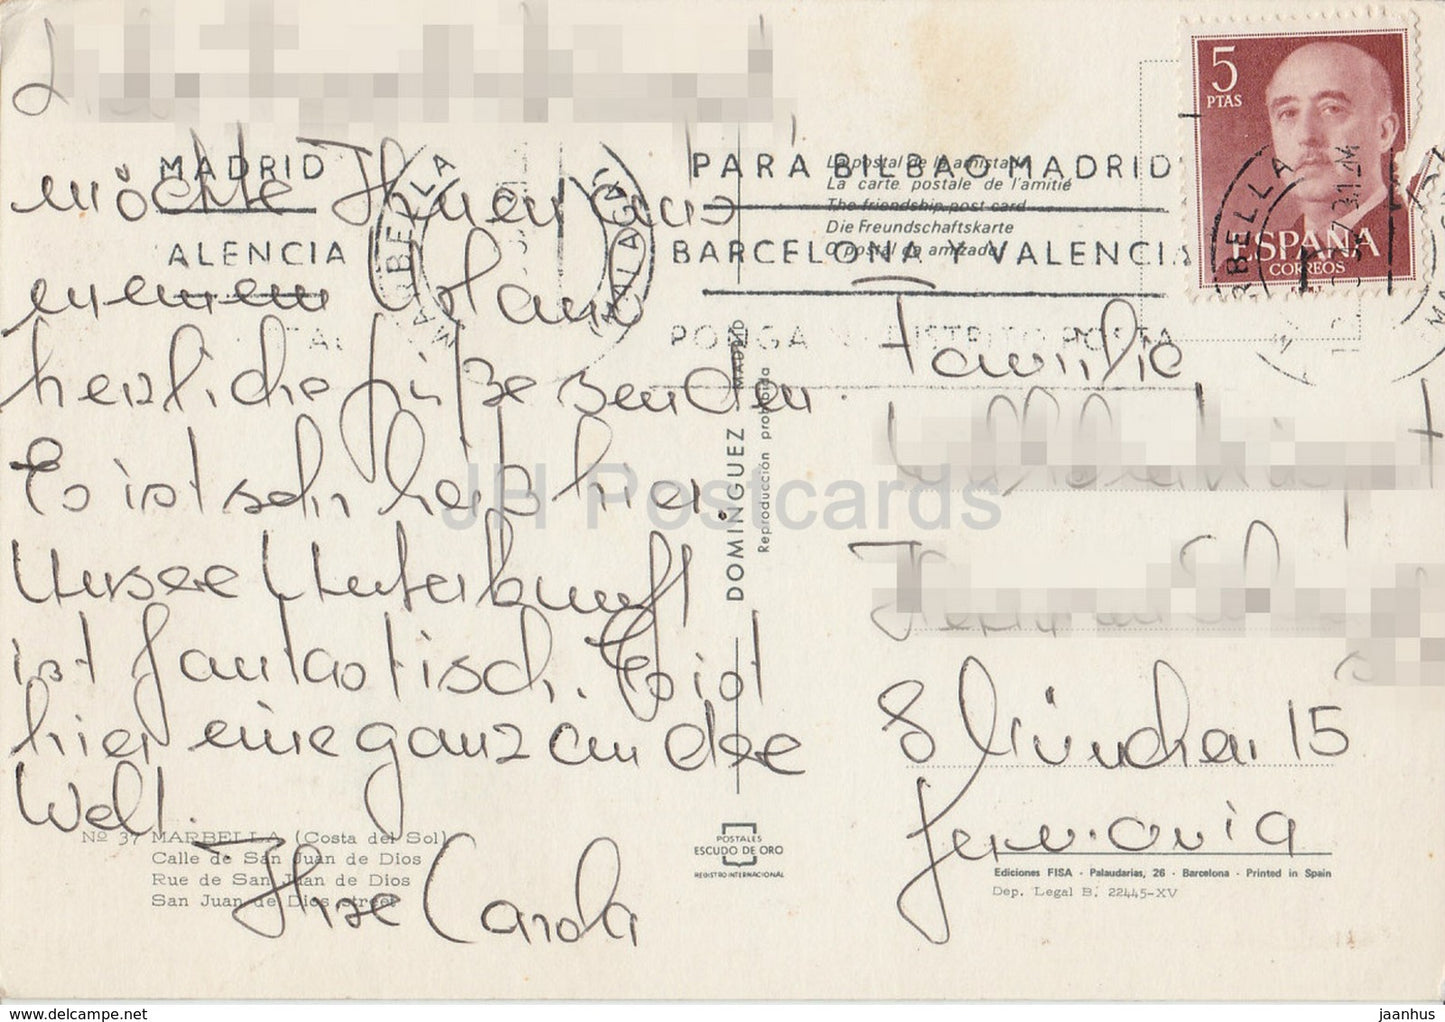 möchte Ihnen aus
meinem Urlaub
herzliche Grüße senden.
Es ist sehr heiß hier.
Unsere Unterkunft
ist fantastisch. Es ist
hier eine ganz andere
Welt.
Ihre Carola
Nº 37 MARBELLA (Costa del Sol)
Calle de San Juan de Dios
Rue de San Juan de Dios
San Juan de Dios street
MADRID
ALENCIA
MARBELLA
MALAGA
PARA BILBAO MADRID
BARCELONA Y VALENCIA
PONGA DISTRITO POSTA
La postal de la amistad
La carte postale de l'amitié
The friendship post card
Die Freundschaftskarte
O postal da amizade
DOMINGUEZ MADRID
Reproducción prohibida
POSTALES
ESCUDO DE ORO
REGISTRO INTERNACIONAL
5
PTAS
ESPAÑA
CORREOS
Familie
8 München 15
Germania
Ediciones FISA - Palaudarias, 26 - Barcelona - Printed in Spain
Dep. Legal B. 22445-XV
JH Postcards
www.delcampe.net
jaanhus